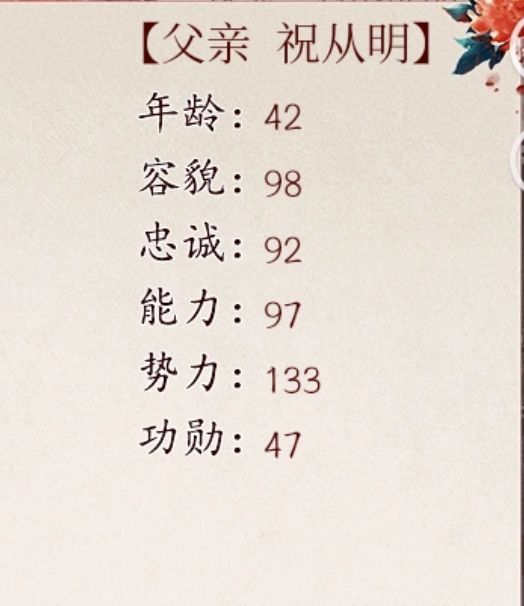 【父亲 祝从明】
年龄：42
容貌：98
忠诚：92
能力：97
势力：133
功勋：47